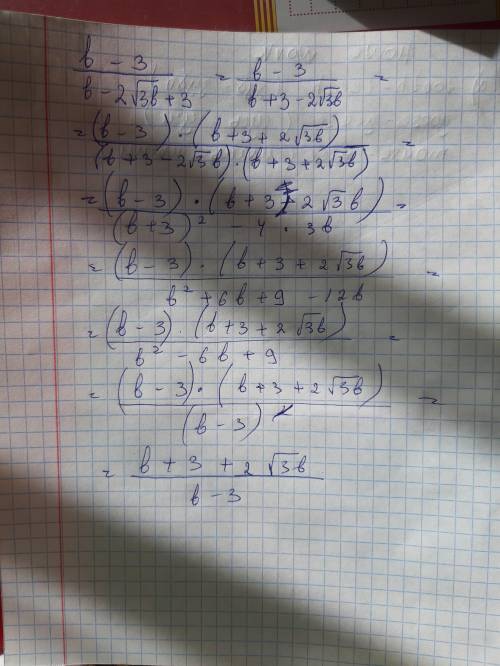 (b - 3)/(b - 2√3b + 3) = (b - 3)/(b + 3 - 2√3b) =
= ((b - 3) · (b + 3 + 2√3b))/((b + 3 - 2√3b) · (b + 3 + 2√3b)) =
= ((b - 3) · (b + 3 + 2√3b))/((b + 3)² - 4 · 3b) =
= ((b - 3) · (b + 3 + 2√3b))/(b² + 6b + 9 - 12b) =
= ((b - 3) · (b + 3 + 2√3b))/(b² - 6b + 9) =
= ((b - 3) · (b + 3 + 2√3b))/((b - 3)²) =
= (b + 3 + 2√3b)/(b - 3)